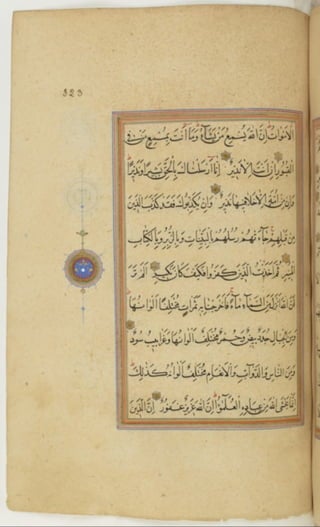 323
الاموات ان الله يسمع من يشاء وما انت بمسمع من فى
القبور ان انت الا نذير انا ارسلناك بالحق بشيرا ونذيرا
وان من امة الا خلا فيها نذير وان يكذبوك فقد كذب الذين
من قبلهم جاءتهم رسلهم بالبينات وبالزبر وبالكتاب
المنير ثم اخذت الذين كفروا فكيف كان نكير الم تر
ان الله انزل من السماء ماء فاخرجنا به ثمرات مختلفا الوانها
ومن الجبال جدد بيض وحمر مختلف الوانها وغرابيب سود
ومن الناس والدواب والانعام مختلف الوانه كذلك
انما يخشى الله من عباده العلموا ان الله عزيز غفور ان الذين